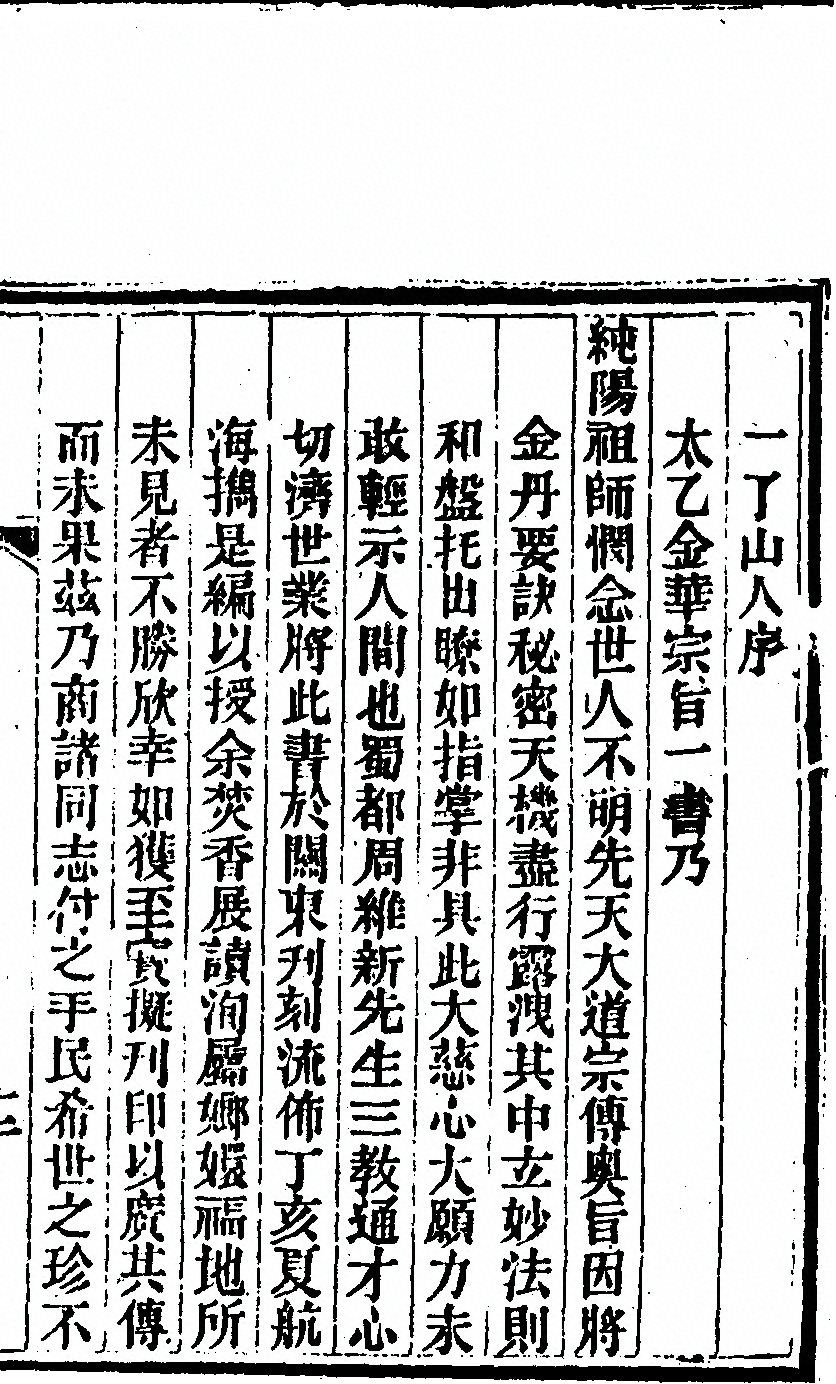 一了山人序
太乙金華宗旨一書乃
純陽祖師憫念世人不明先天大道宗傳奥旨因將
金丹要訣秘密天機盡行露洩其中立妙法則
和盤托出瞭如指掌非具此大慈心大願力未
敢輕示人間也蜀都周維新先生三教通才心
切濟世業將此書於關東刋刻流佈丁亥夏航
海擕是編以授余焚香展讀洵屬嫏嬛福地所
未見者不勝欣幸如獲至寳擬刋印以廣其傳
而未果茲乃商諸同志付之手民希世之珍不